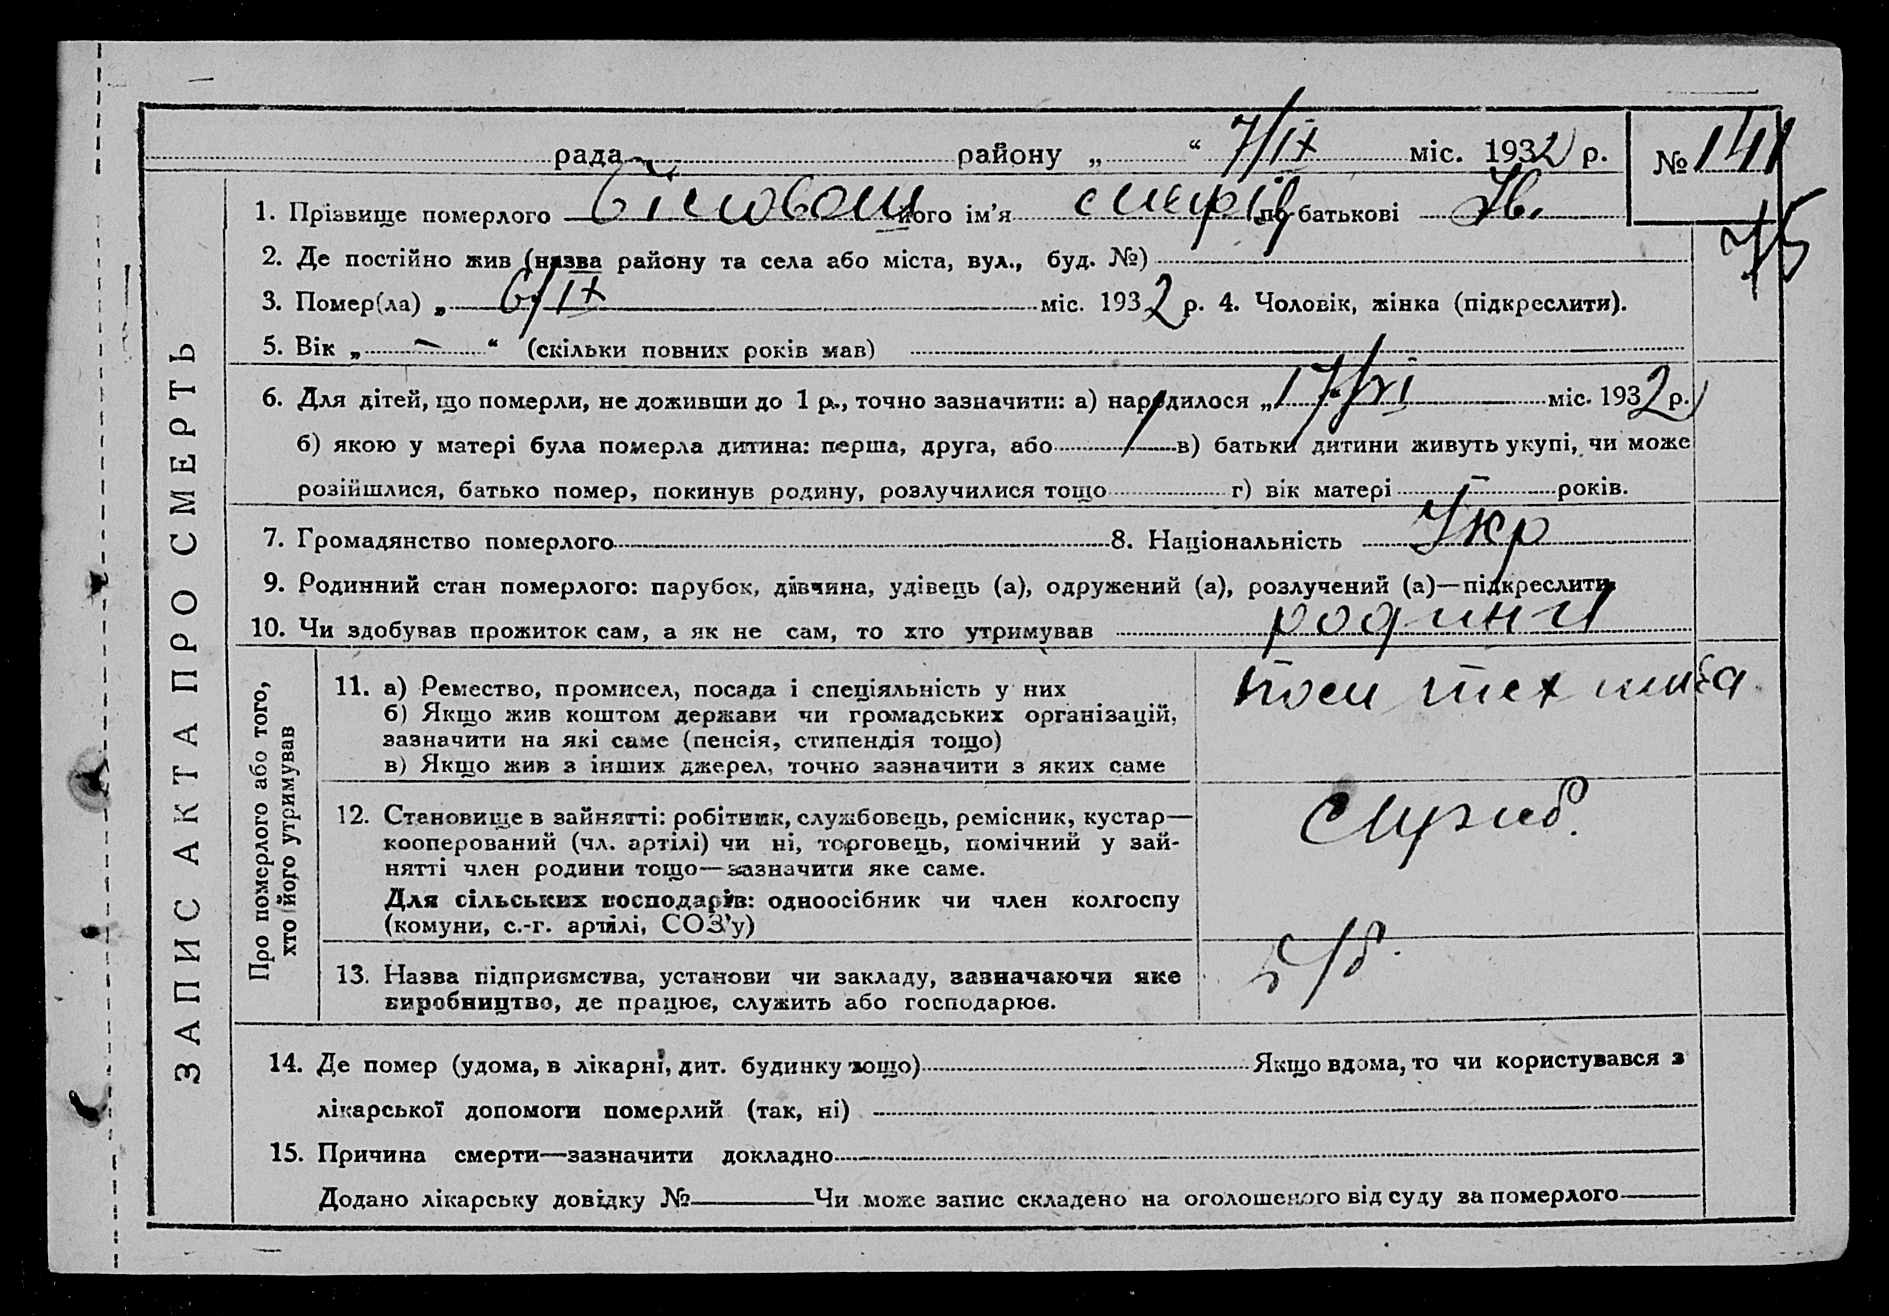 рада района „ “ 7/IX міс. 1932 р. № 141
1. Прізвище померлого його ім'я по батькові Ів. 75
2. Де постійно жив (назва району та села або міста, вул., буд. №)
3. Помер(ла) „ 6/IX міс. 1932 р. 4. Чоловік, жінка (підкреслити).
5. Вік „ — “ (скільки повних років мав)
6. Для дітей, що померли, не доживши до 1 р., точно зазначити: а) народилося „ 17/VI міс. 1932 р.
б) якою у матері була померла дитина: перша, друга, або в) батьки дитини живуть укупі, чи може
розійшлися, батько помер, покинув родину, розлучилися тощо г) вік матері — років.
7. Громадянство померлого 8. Національність Укр
9. Родинний стан померлого: парубок, дівчина, удівець (а), одружений (а), розлучений (а)—підкреслити
10. Чи здобував прожиток сам, а як не сам, то хто утримував родини
ЗАПИС АКТА ПРО СМЕРТЬ
Про померлого або того,
хто його утримував
11. а) Ремество, промисел, посада і спеціяльність у них
б) Якщо жив коштом держави чи громадських організацій,
зазначити на які саме (пенсія, стипендія тощо)
в) Якщо жив з інших джерел, точно зазначити з яких саме
12. Становище в зайнятті: робітник, службовець, ремісник, кустар—
кооперований (чл. артілі) чи ні, торговець, помічний у зай-
нятті член родини тощо—зазначити яке саме.
Для сільських господарів: одноосібник чи член колгоспу
(комуни, с.-г. артілі, СОЗ'у)
служб.
13. Назва підприємства, установи чи закладу, зазначаючи яке
виробництво, де працює, служить або господарює.
14. Де помер (удома, в лікарні, дит. будинку тощо) Якщо вдома, то чи користувався з
лікарської допомоги померлий (так, ні)
15. Причина смерти—зазначити докладно
Додано лікарську довідку № Чи може запис складено на оголошеного від суду за померлого